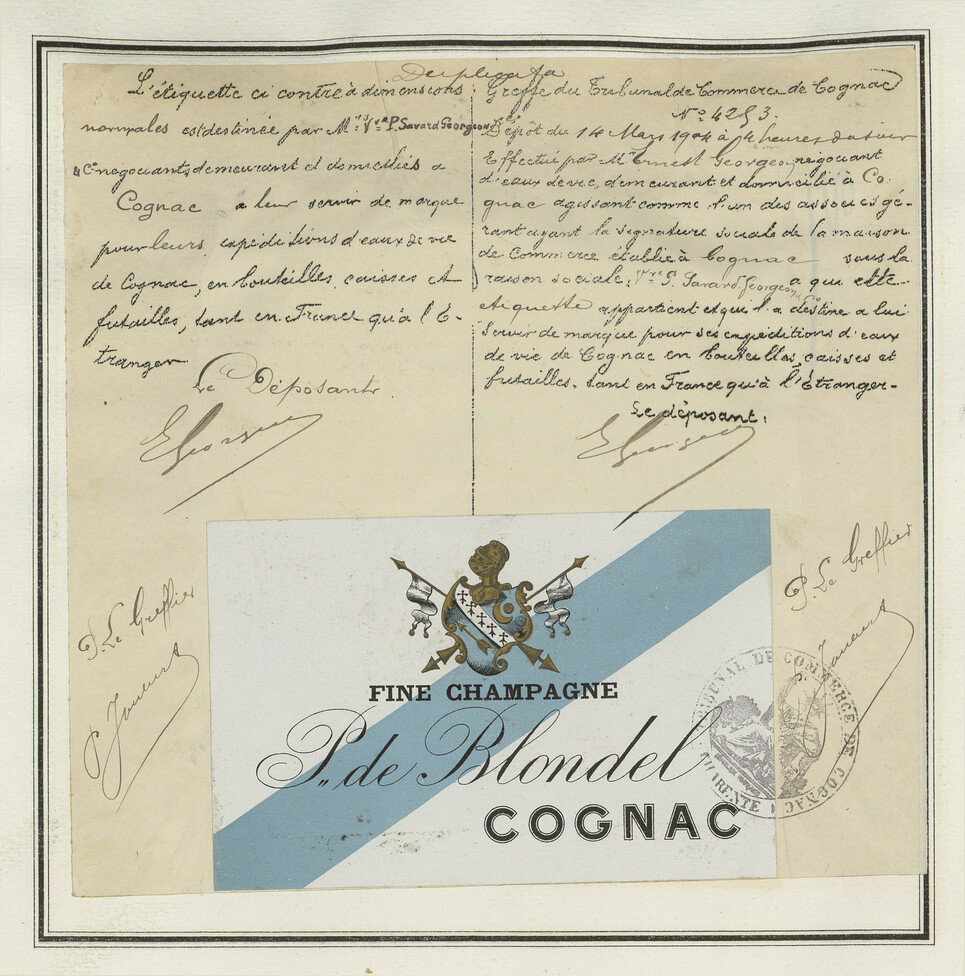 Duplicata
L'étiquette ci contre à dimensions
normales est destinée par Mrs Vve P. Savard Georgeon
& Ce négociants demeurant et domiciliés a
Cognac a leur servir de marque
pour leurs expéditions d'eaux de vie
de Cognac, en bouteilles, caisses et
futailles, tant en France qu'à l'E-
tranger
Le Déposant
EGeorgeon
Greffe du Tribunal de Commerce de Cognac
No 4253.
Dépôt du 14 Mars 1904 à 4 heures du soir
Effectué par Mr Ernest Georgeon négociant
d'eaux de vie, demeurant et domicilié à Co-
gnac agissant comme l'un des associés gé-
rant ayant la signature sociale de la maison
de Commerce établie à Cognac sous la
raison sociale: Vve P. Savard Georgeon & Cie a qui cette
etiquette appartient et qui l'a destine a lui
servir de marque pour ses expéditions d'eaux
de vie de Cognac en bouteilles, caisses et
futailles, tant en France qu'à l'Etranger-
Le déposant:
EGeorgeon
P. Le Greffier
P. Le Greffier
FINE CHAMPAGNE
P. de Blondel
COGNAC
TRIBUNAL DE COMMERCE DE COGNAC
CHARENTE